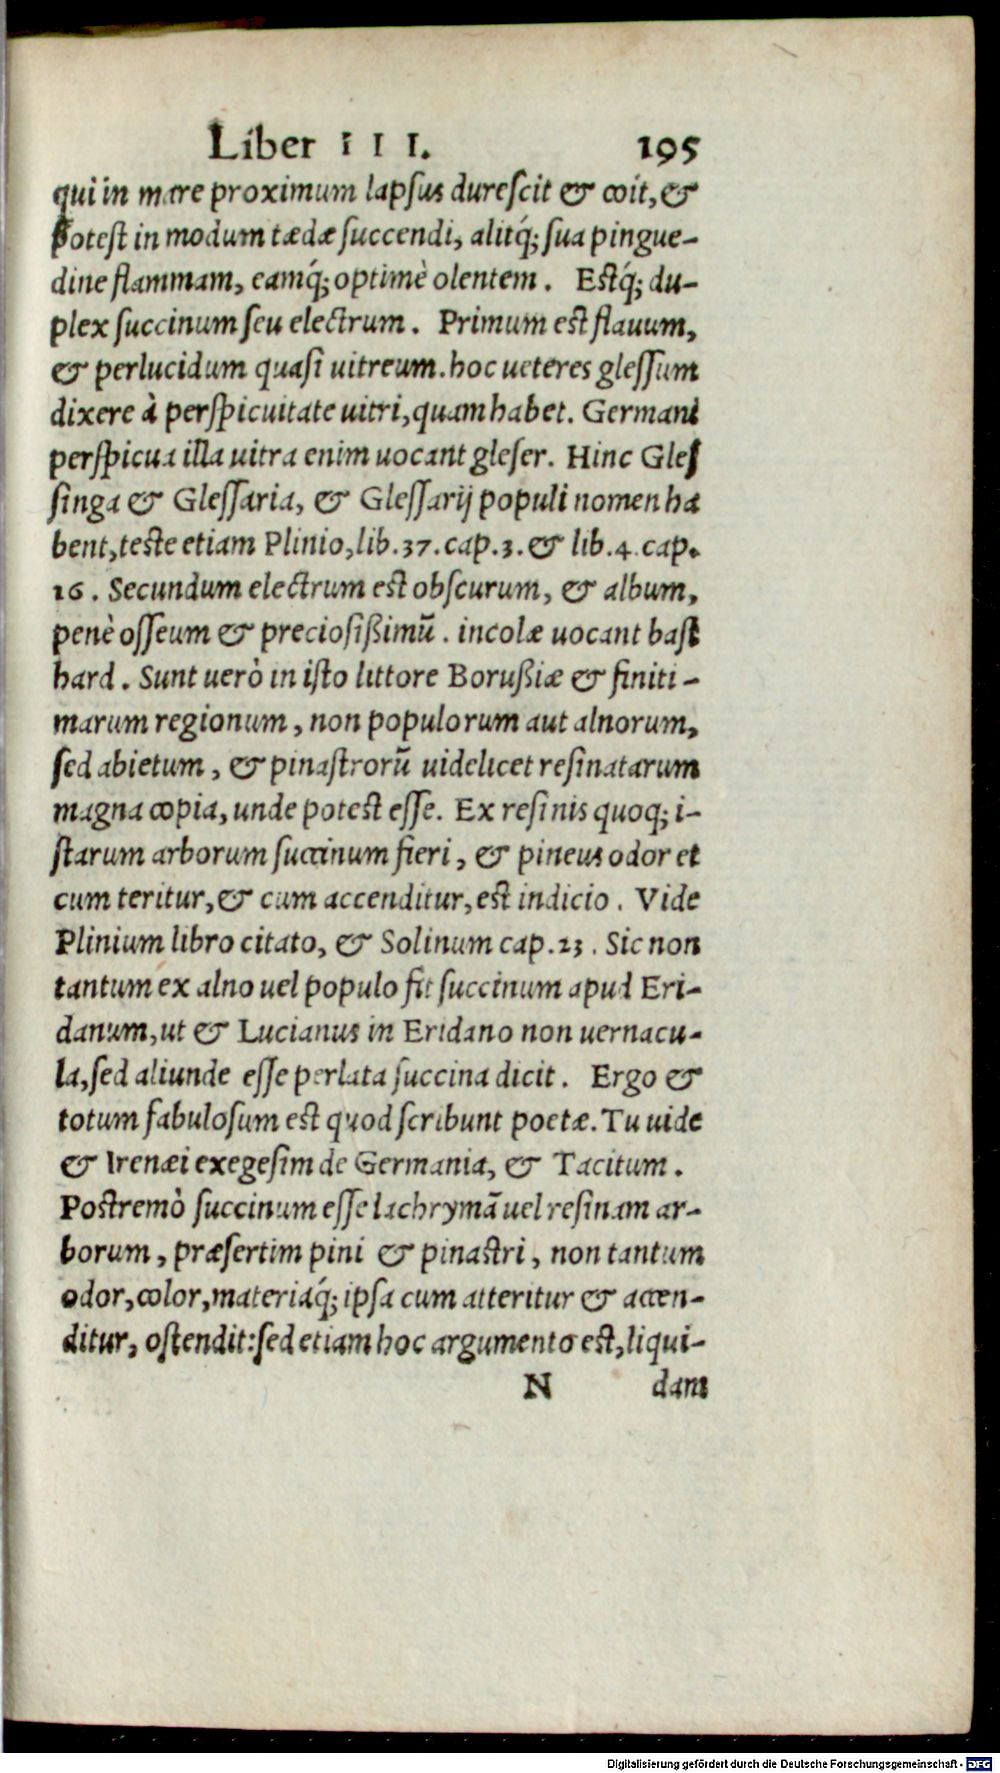 Liber III. 195
qui in mare proximum lapsus durescit & coit, &
potest in modum tædæ succendi, alitq́; sua pingue-
dine flammam, eamq́; optimè olentem. Estq́; du-
plex succinum seu electrum. Primum est flauum,
& perlucidum quasi uitreum. hoc ueteres glessum
dixere à perspicuitate uitri, quam habet. Germani
perspicua illa uitra enim uocant gleser. Hinc Gles
singa & Glessaria, & Glessarij populi nomen ha
bent, teste etiam Plinio, lib. 37. cap. 3. & lib. 4. cap.
16. Secundum electrum est obscurum, & album,
penè osseum & preciosißimū. incolæ uocant bast
hard. Sunt uerò in isto littore Borußiæ & finiti-
marum regionum, non populorum aut alnorum,
sed abietum, & pinastrorū uidelicet resinatarum
magna copia, unde potest esse. Ex resinis quoq; i-
starum arborum succinum fieri, & pineus odor et
cum teritur, & cum accenditur, est indicio. Vide
Plinium libro citato, & Solinum cap. 23. Sic non
tantum ex alno uel populo fit succinum apud Eri-
danum, ut & Lucianus in Eridano non uernacu-
la, sed aliunde esse perlata succina dicit. Ergo &
totum fabulosum est quod scribunt poetæ. Tu uide
& Irenæi exegesim de Germania, & Tacitum.
Postremò succinum esse lachrymā uel resinam ar-
borum, præsertim pini & pinastri, non tantum
odor, color, materiáq́; ipsa cum atteritur & accen-
ditur, ostendit: sed etiam hoc argumento est, liqui-
N dam
Digitalisierung gefördert durch die Deutsche Forschungsgemeinschaft - DFG